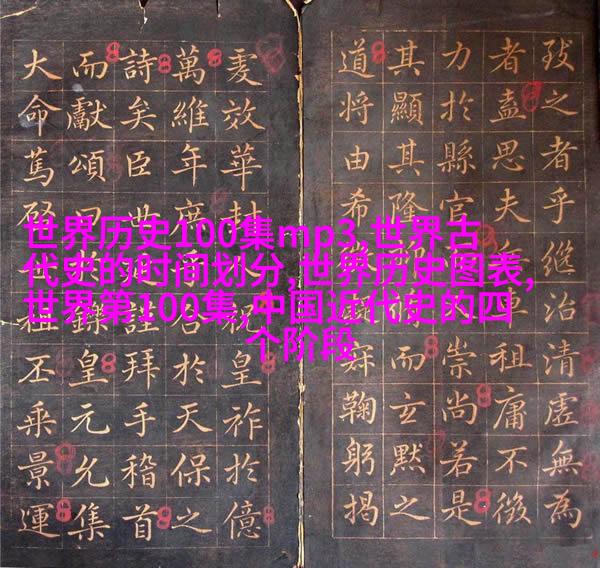 世界历史100集mp3,世界古
代史的时间划分,世界历史图表,
世界第100集,中国近代史的四
个阶段
致之者乎継治清虚無為
者盍思夫車租庸不徵
力於縣官崇尚若是
其顯其隆而玄默之
道將由希鞠躬揭
效華封祝皇祚於億
萬維年於天保之
詩矣臣世謹拜手稽首
而獻頌曰錄皇元允集
大命篤祖丕乘景運